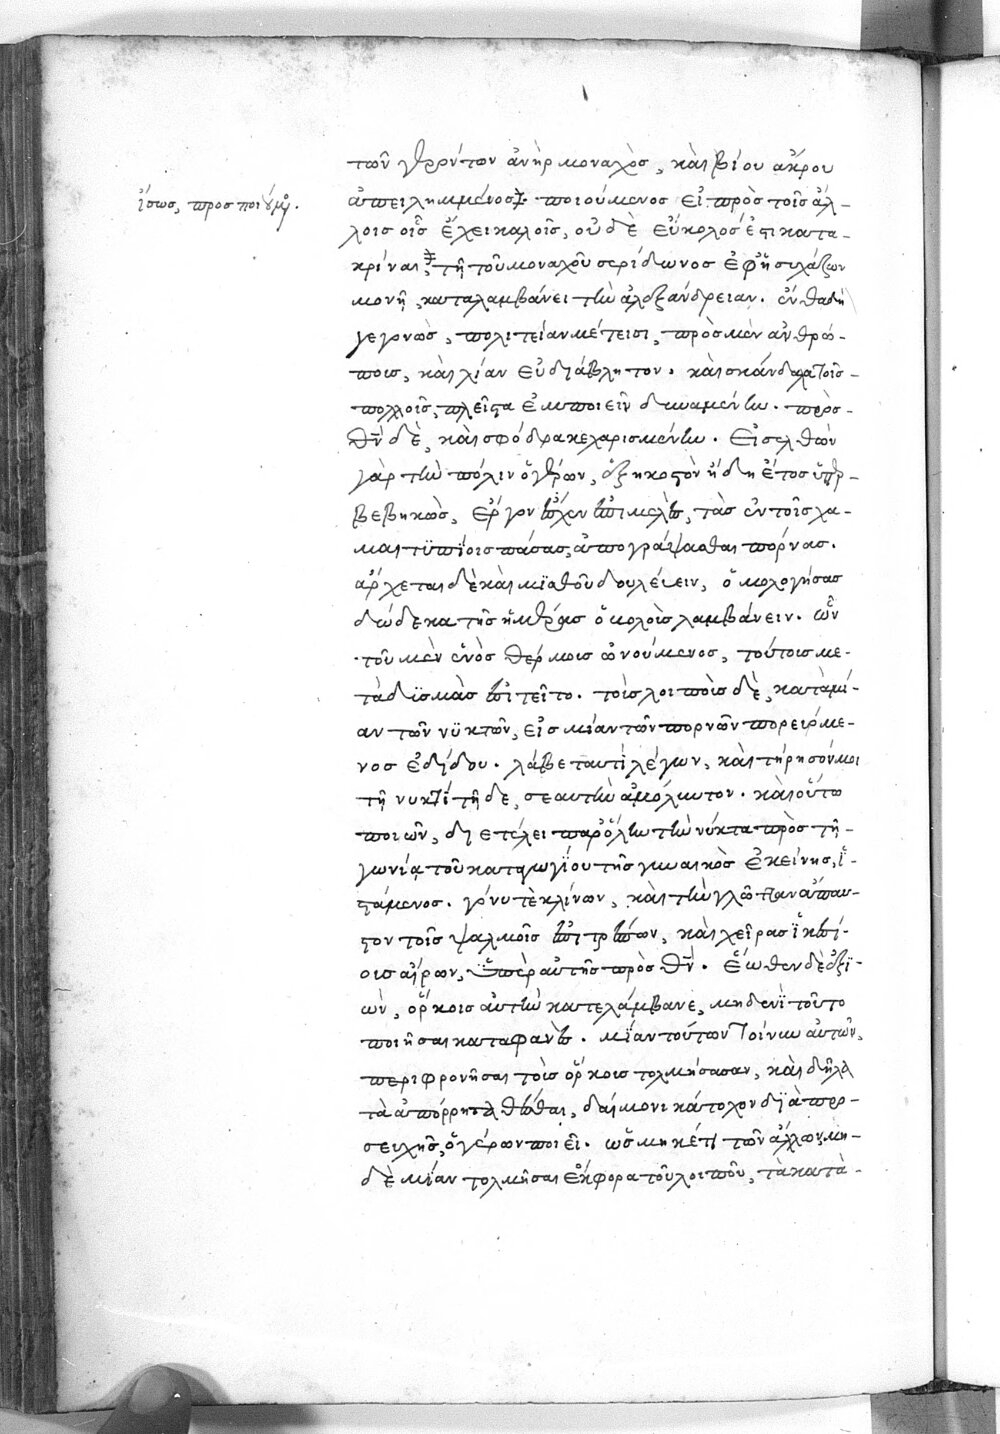 ἴσως, προσποιούμενος.
τῶν γερόντων ἀνὴρ μοναχὸς, καὶ βίου ἄκρου
ἀπειλημμένος· ποιούμενος εἰ πρὸς τοῖς ἄλ-
λοις οἷς ἔχει καλοῖς, οὐδὲ εὔκολός ἐστι κατα-
κρίναι, τῇ τοῦ μοναχοῦ σερίδωνος ἐφησυχάζων
μονῇ, καταλαμβάνει τὴν ἀλεξάνδρειαν. ἐνθαδὴ
γεγονὼς, πολιτείαν μέτεισι, πρὸς μὲν ἀνθρώ-
ποις, καὶ λίαν εὐδιάβλητον. καὶ σκάνδαλα τοῖς
πολλοῖς, πλεῖστα ἐμποιεῖν δυναμένην. πρὸς
θν δὲ, καὶ σφόδρα κεχαρισμένην. εἰσελθὼν
γὰρ τὴν πόλιν ὁ γέρων, ἑξηκοστὸν ἤδη ἔτος ὑπερ-
βεβηκὼς, ἔργον ἔσχεν ἐπιμελὲς, τὰς ἐν τοῖς χα-
μαιτυπίοις πάσας, ἀπογράψασθαι πόρνας.
ἄρχεται δὲ καὶ μισθοῦ δουλεύειν, ὁμολογήσας
δώδεκα τῆς ἡμέρας ὀβολοὺς λαμβάνειν. ὧν
τοῦ μὲν ἑνὸς θέρμοις ὠνούμενος, τούτοις με-
τὰ δυσμὰς ἐσιτεῖτο. τοὺς λοιποὺς δὲ, κατὰ μί-
αν τῶν νυκτῶν, εἰς μίαν τῶν πορνῶν πορευόμε-
νος ἐδίδου. λάβε ταυτὶ λέγων, καὶ τήρησόν μοι
τῇ νυκτὶ τῇδε, σεαυτὴν ἀμόλυντον. καὶ οὕτω
ποιῶν, διετέλει παρ' ὅλην τὴν νύκτα πρὸς τῇ
γωνίᾳ τοῦ καταγωγίου τῆς γυναικὸς ἐκείνης, ἱ-
στάμενος. γόνυ τε κλίνων, καὶ τὴν γλῶτταν ἄπαυ-
στον τοῖς ψαλμοῖς ἐπιτρέπων, καὶ χεῖρας ἱκεσί-
οις αἴρων, ὑπὲρ αὐτῆς πρὸς θν. ἕωθεν δὲ ἐξι-
ὼν, ὅρκοις αὐτὴν κατελάμβανε, μηδενὶ τοῦτο
ποιῆσαι καταφανές. μίαν τούτων τοίνυν αὐτῶν,
περιφρονῆσαι τοὺς ὅρκους τολμήσασαν, καὶ δῆλα
τὰ ἀπόρρητα θέσθαι, δαίμονι κάτοχον διὰ προ-
σευχῆς, ὁ γέρων ποιεῖ. ὡς μηκέτι τῶν ἄλλων μη-
δὲ μίαν τολμῆσαι ἔκφορα τοῦ λοιποῦ, τὰ κατὰ